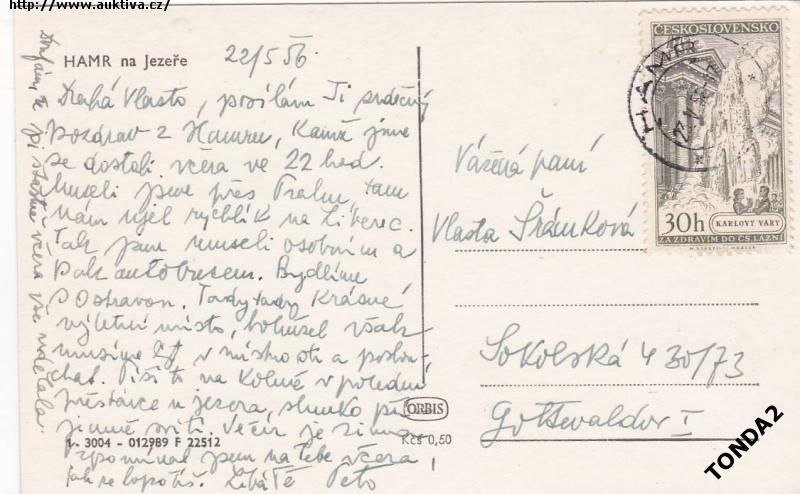 http://www.auktiva.cz/
HAMR na Jezeře
22/5 56.
Drahá Vlasto, posílám Ti srdečný
pozdrav z Hamru, kamž jsme
se dostali včera ve 22 hod.
Museli jsme přes Prahu, tam
nám ujel rychlík na Liberec.
Tak jsme museli osobním a
pak autobusem. Bydlíme
s Ostravou. Tady krásné
výletní místo, bohužel však
musíme v místnosti a poslou-
chat. Píši to na v polední
přestávce u jezera, slunko pří-
jemně svítí. Večer je zima
vzpomínal jsem na tebe včera,
jak se lopotíš. Líbá Tě
včera vše udělala.
1 - 3004 - 012989 F 22512
ORBIS
Kčs 0,50
ČESKOSLOVENSKO
30h
KARLOVY VARY
ZA ZDRAVÍM DO ČS. LÁZNÍ
HAMR
Vážená paní
Vlasta Šrámková
Sokolská 430/73
Gottwaldov I
TONDA2